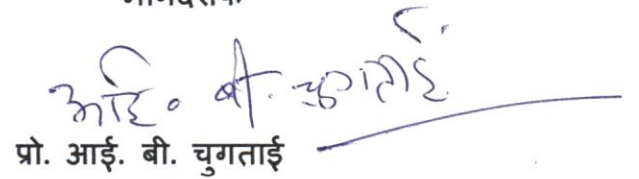 आई. बी. चुगताई
प्रो. आई. बी. चुगताई